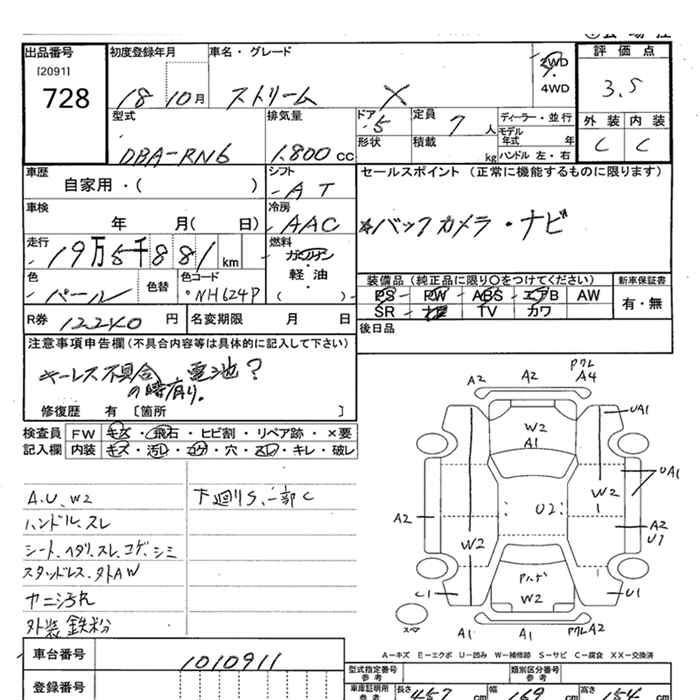 出品番号 初度登録年月 車名・グレード 2WD 評価点
(20911)
728 18 10月 ストリーム X 4WD 3.5
型式 排気量 ドア 5 定員 7人 ディーラー・並行 外装 内装
DBA-RN6 1.800cc 形状 積載 kg モデル年式 年 C C
ハンドル 左・右
車歴 シフト セールスポイント (正常に機能するものに限ります)
自家用・( ) AT
車検 冷房
年 月( 日) AAC ☆バックカメラ・ナビ
走行 19万5千881km 燃料
ガソリン
色 色替 色コード 軽・油 装備品 (純正品に限り〇をつけてください) 新車保証書
パール NH624P ( ) PS PW ABS エアB AW 有・無
R券 12240円 名変期限 月 日 SR TV カワ
注意事項申告欄(不具合内容等は具体的に記入して下さい) 後日品
キーレス不具合 電池?
の時有り。
修復歴 有 〔箇所 〕
検査員 FW キズ・飛石・ヒビ割・リペア跡・×要
記入欄 内装 キズ・汚レ・コゲ・穴・スレ・キレ・破レ
A.U.W2 下廻りS、一部C
ハンドル.スレ
シート.ヘタリ.スレ.コゲ.シミ
スタッドレス.外AW
外装鉄粉
A2 A2 A4
W2 UA1
A1
UA1
W2
1
U2
A2 A2
U1
W2
W2
C1 1 U1
スペア A1 A1 A2
A-キズ E-エクボ U-凹み W-補修跡 S-サビ C-腐食 XX-交換済
車台番号 1010911 型式指定番号 参考 類別区分番号 参考
登録番号 車庫証明所 参考 長さ 457cm 幅 169cm 高さ 154cm